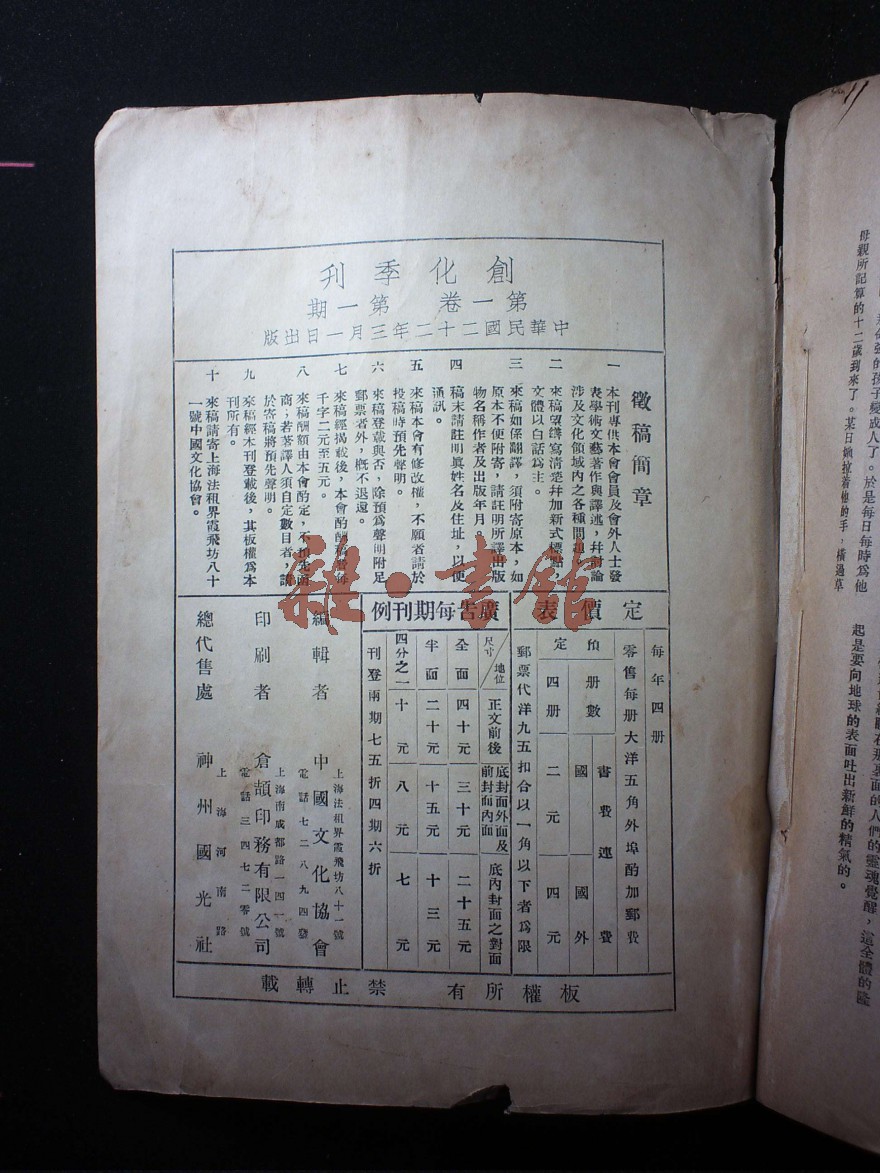 創化季刊
第一卷 第一期
中華民國二十二年三月一日出版
徵稿簡章
一 本刊專供本會會員及會外人士發
表學術文藝著作與譯述,幷討論
涉及文化領域內之各種問題。
二 來稿望繕寫清楚幷加新式標點,
文體以白話爲主。
三 來稿如係翻譯,須附寄原本,如
原本不便附寄,請註明所譯出版
物名稱作者及出版年月。
四 稿末請註明眞姓名及住址,以便
通訊。
五 來稿本會有修改權,不願者請於
投稿時預先聲明。
六 來稿登載與否,除預爲聲明附足
郵票者外,槪不退還。
七 來稿經揭載後,本會酌酬稿費每
千字二元至五元。
八 來稿酬額由本會酌定,不預先函
商;若著譯人須自定數目者,請
於寄稿時預先聲明。
九 來稿經本刊登載後,其板權爲本
刊所有。
十 來稿請寄上海法租界霞飛坊八十
一號中國文化協會。
定價表
每年四册
零售每册大洋五角外埠酌加郵費
預定
册數 書費連郵費
國內 國外
四册 二元 四元
郵票代洋九五扣合以一角以下者爲限
廣告每期刊例
地位/尺寸 正文前後 底封面外面及前封面內面 底內封面之對面
全面 四十元 三十元 二十五元
半面 二十元 十五元 十三元
四分之一 十元 八元 七元
刊登兩期七五折四期六折
編輯者 中國文化協會
上海法租界霞飛坊八十一號
電話七二八九四號
印刷者 倉頡印務有限公司
上海南成都路一四一號
電話三四七二零號
總代售處 神州國光社
上海河南路
板權所有 禁止轉載
雜·書館
母親所記算的十二歲到來了。某日她拉着他的手,橫過草
起是要向地球的表面吐出新鮮的精氣的。